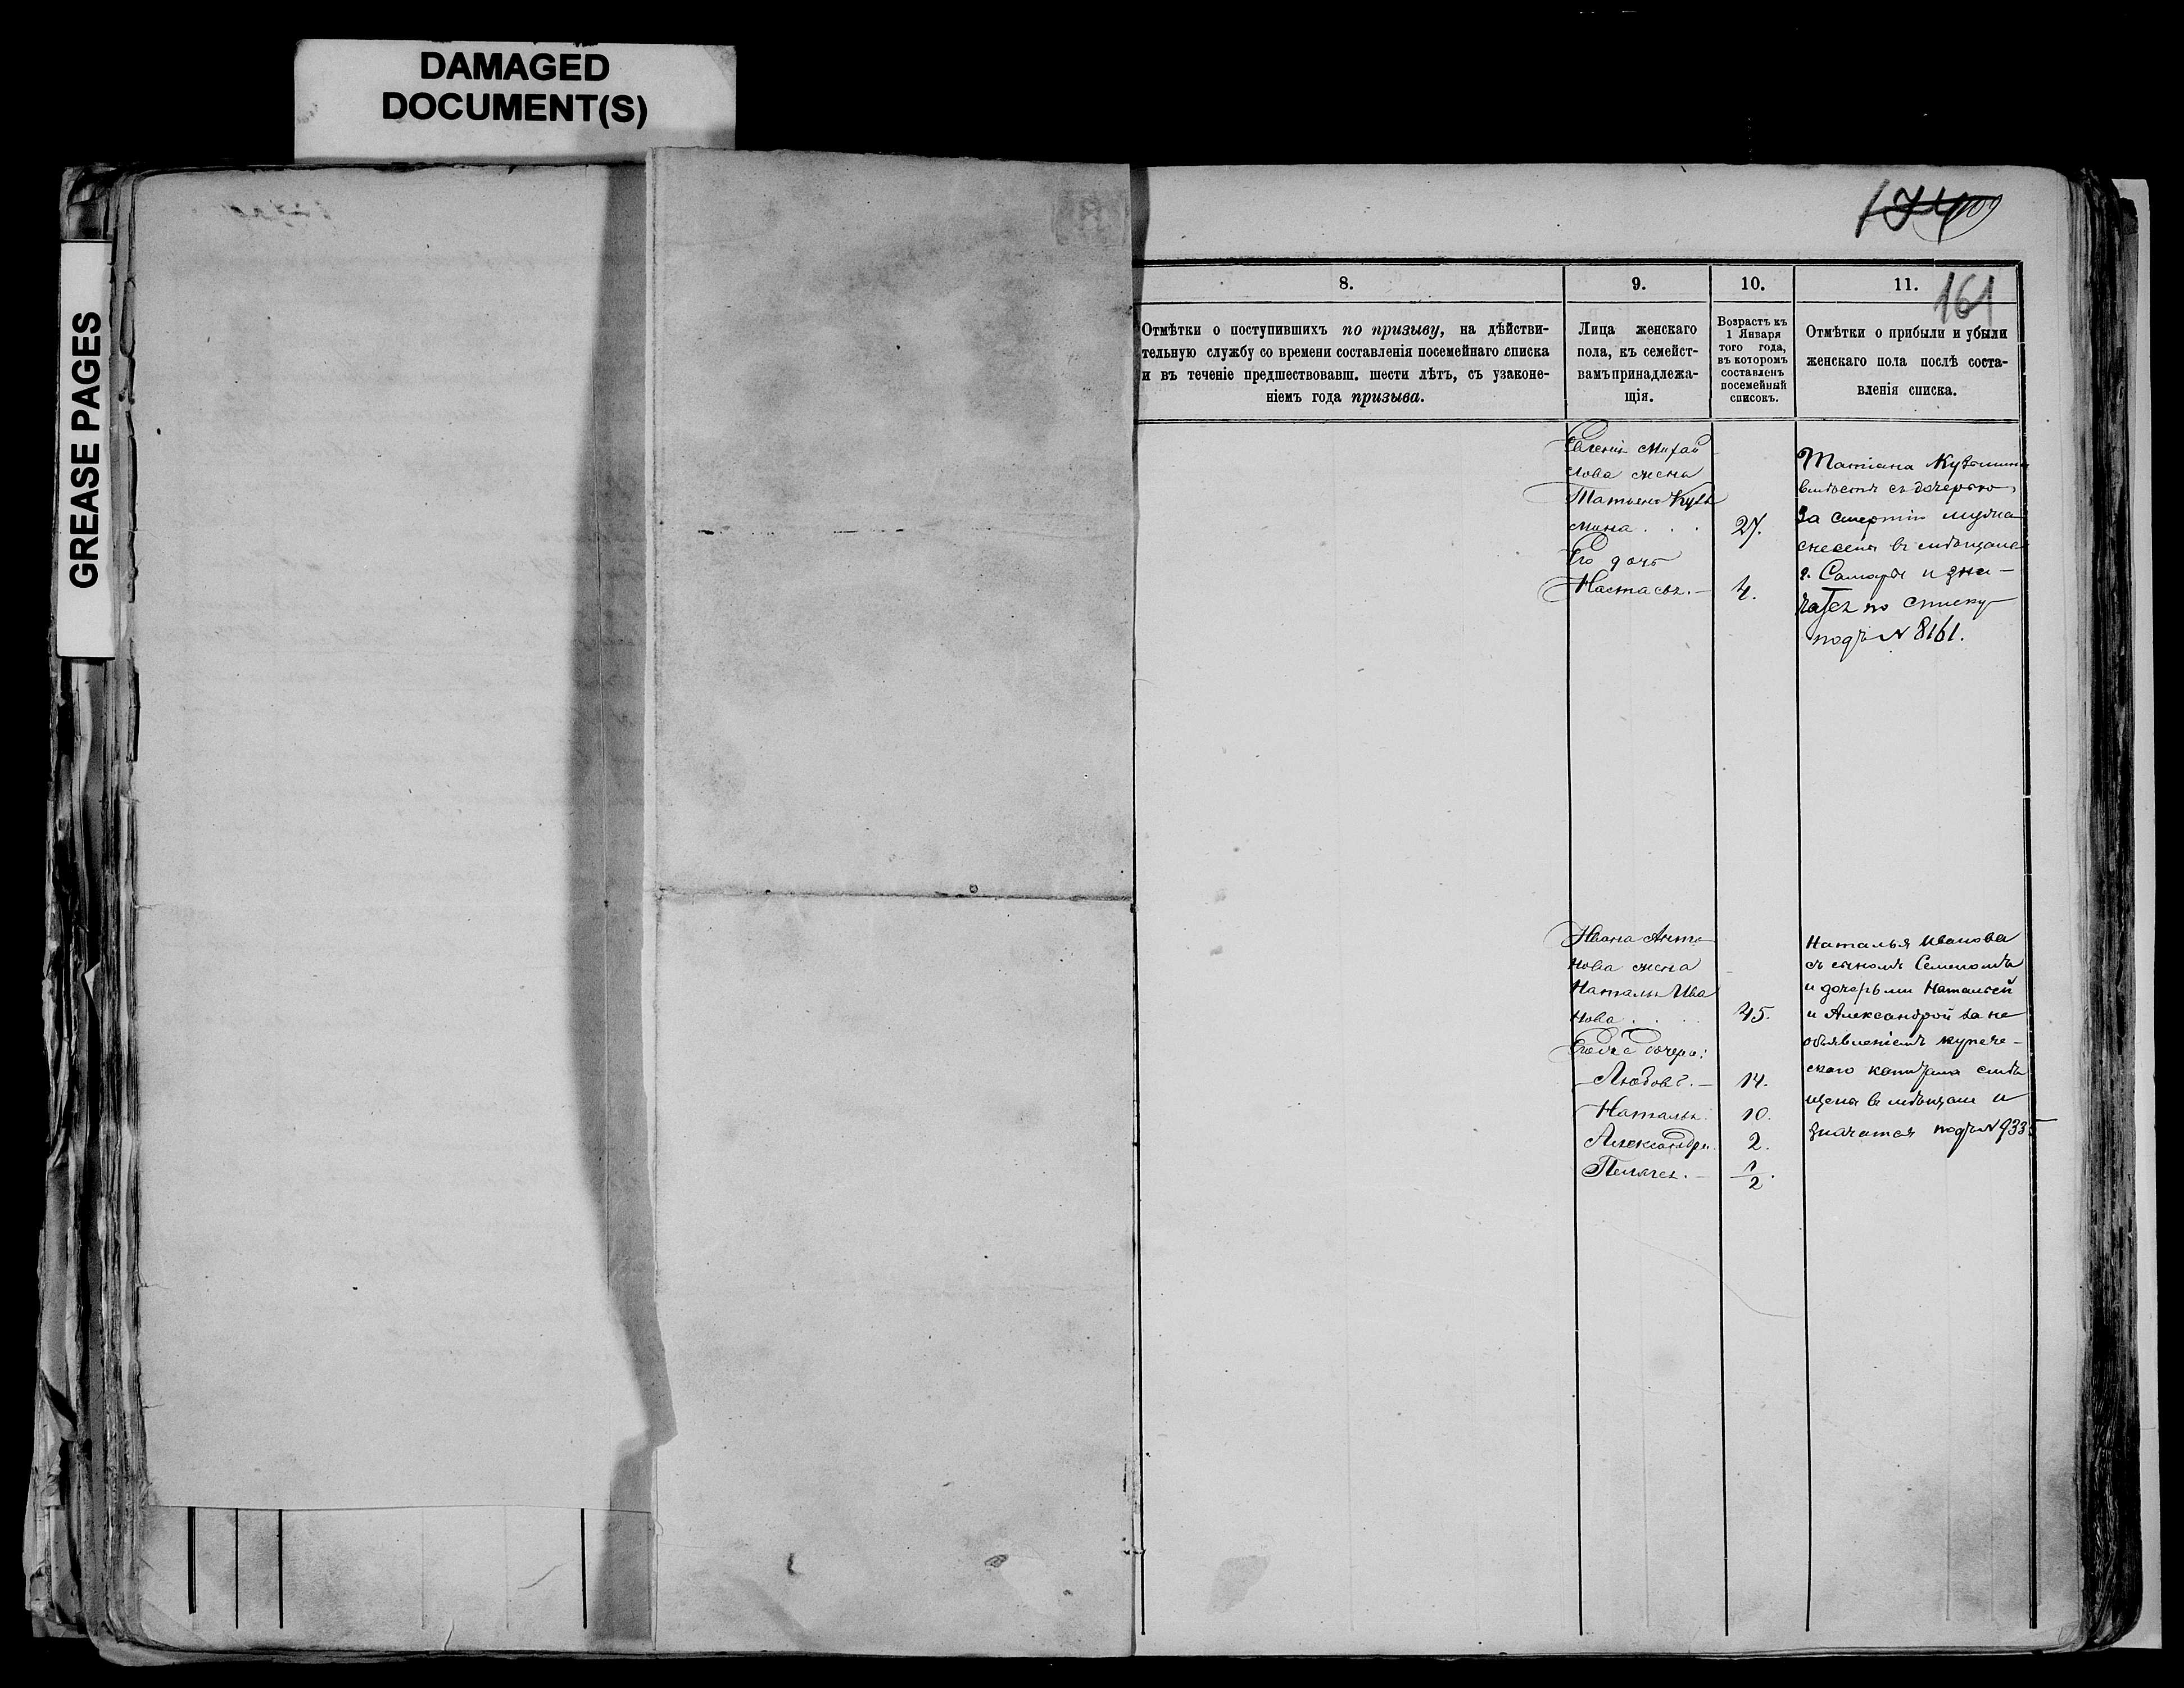 DAMAGED
DOCUMENT(S)
GREASE PAGES
161
8.
Отмѣтки о поступившихъ по призыву, на дѣйстви-
тельную службу со времени составленія посемейнаго списка
и въ теченіе предшествовавш. шести лѣтъ, съ узаконе-
ніемъ года призыва.
9.
Лица женскаго
пола, къ семейст-
вамъ принадлежа-
щія.
10.
Возрастъ къ
1 Января
того года,
въ которомъ
составленъ
посемейный
списокъ.
11.
Отмѣтки о прибыли и убыли
женскаго пола послѣ соста-
вленія списка.
Евгенія Михай
лова жена
Татьяна Кузь
мина . . . 27.
Его дочь
Настасья. — 4.
Татіана Кузьмина
вмѣстѣ съ дочерью,
За смертію мужа
снесена въ мѣщане
г. Самары и зна-
чатся по списку
подъ № 8161.
Ивана Анто-
нова жена
Наталья Ива
нова . . . 45.
дочери:
Любовь. — 14.
Наталья. 10.
Александра. 2.
Пелагея. — 1/2.
Наталья Иванова
съ сыномъ Семеномъ
и дочерьми Натальей
и Александрой за не
объявленіемъ купече-
скаго капитала
въ мѣщане и
значатся подъ №